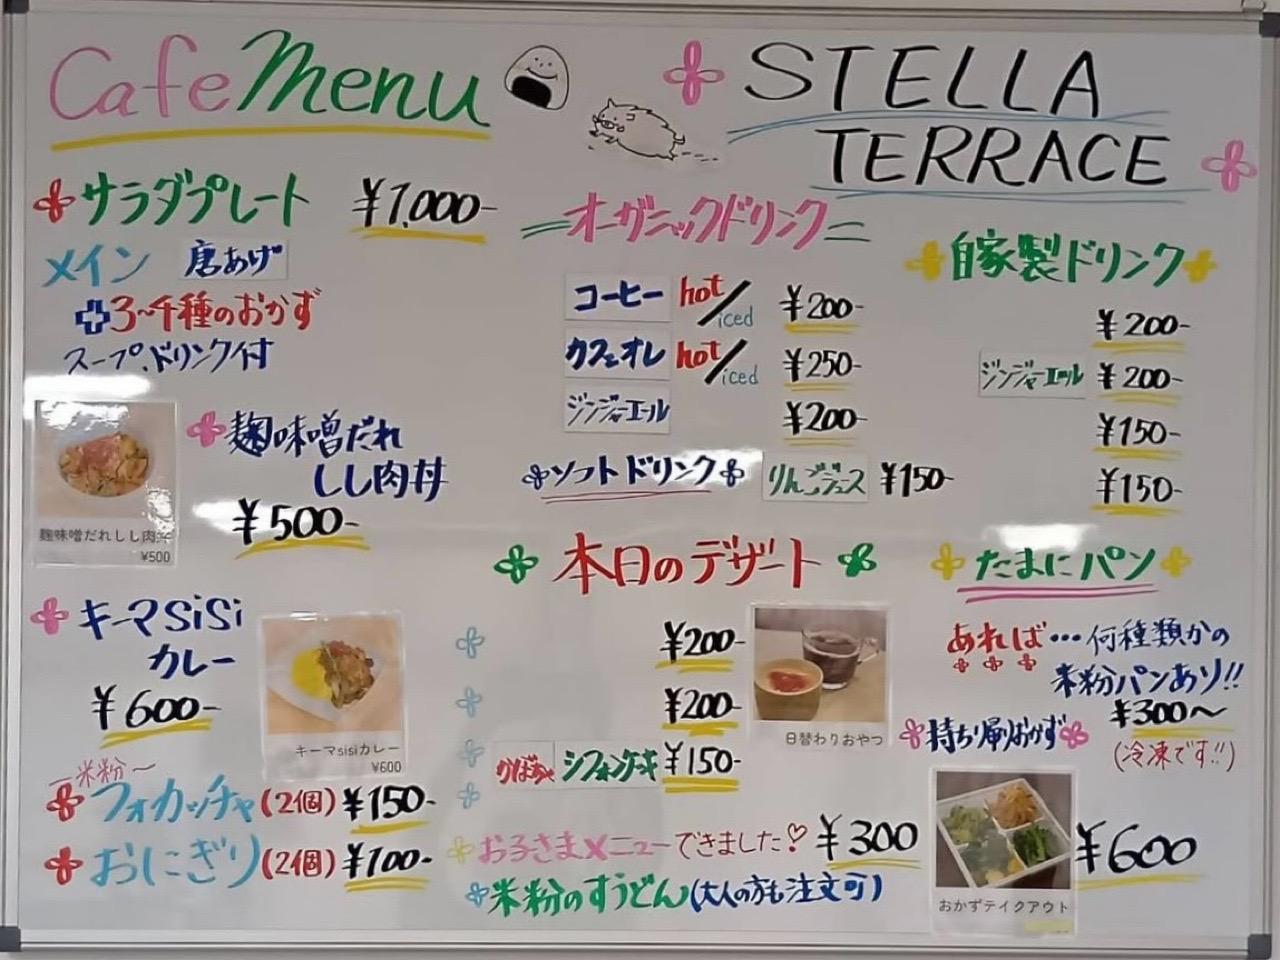 Cafe Menu
STELLA
TERRACE
サラダプレート ¥1,000-
メイン 唐あげ
3~4種のおかず
スープ、ドリンク付
麹味噌だれ
しし肉丼
¥500-
麹味噌だれしし肉丼
¥500
キーマsisi
カレー
¥600-
キーマsisiカレー
¥600
米粉~
フォカッチャ(2個) ¥150-
おにぎり(2個) ¥100-
オーガニックドリンク
コーヒー hot/iced ¥200-
カフェオレ hot/iced ¥250-
ジンジャーエール ¥200-
ソフトドリンク りんごジュース ¥150-
自家製ドリンク
¥200-
ジンジャーエール ¥200-
¥150-
¥150-
本日のデザート
¥200-
¥200-
かぼちゃ シフォンケーキ ¥150-
日替わりおやつ
お子さまメニューできました♡ ¥300
米粉のすうどん(大人の方も注文可)
たまにパン
あれば…何種類かの
米粉パンあり!!
¥300~
(冷凍です!!)
持ち帰りおかず
おかずテイクアウト
¥600